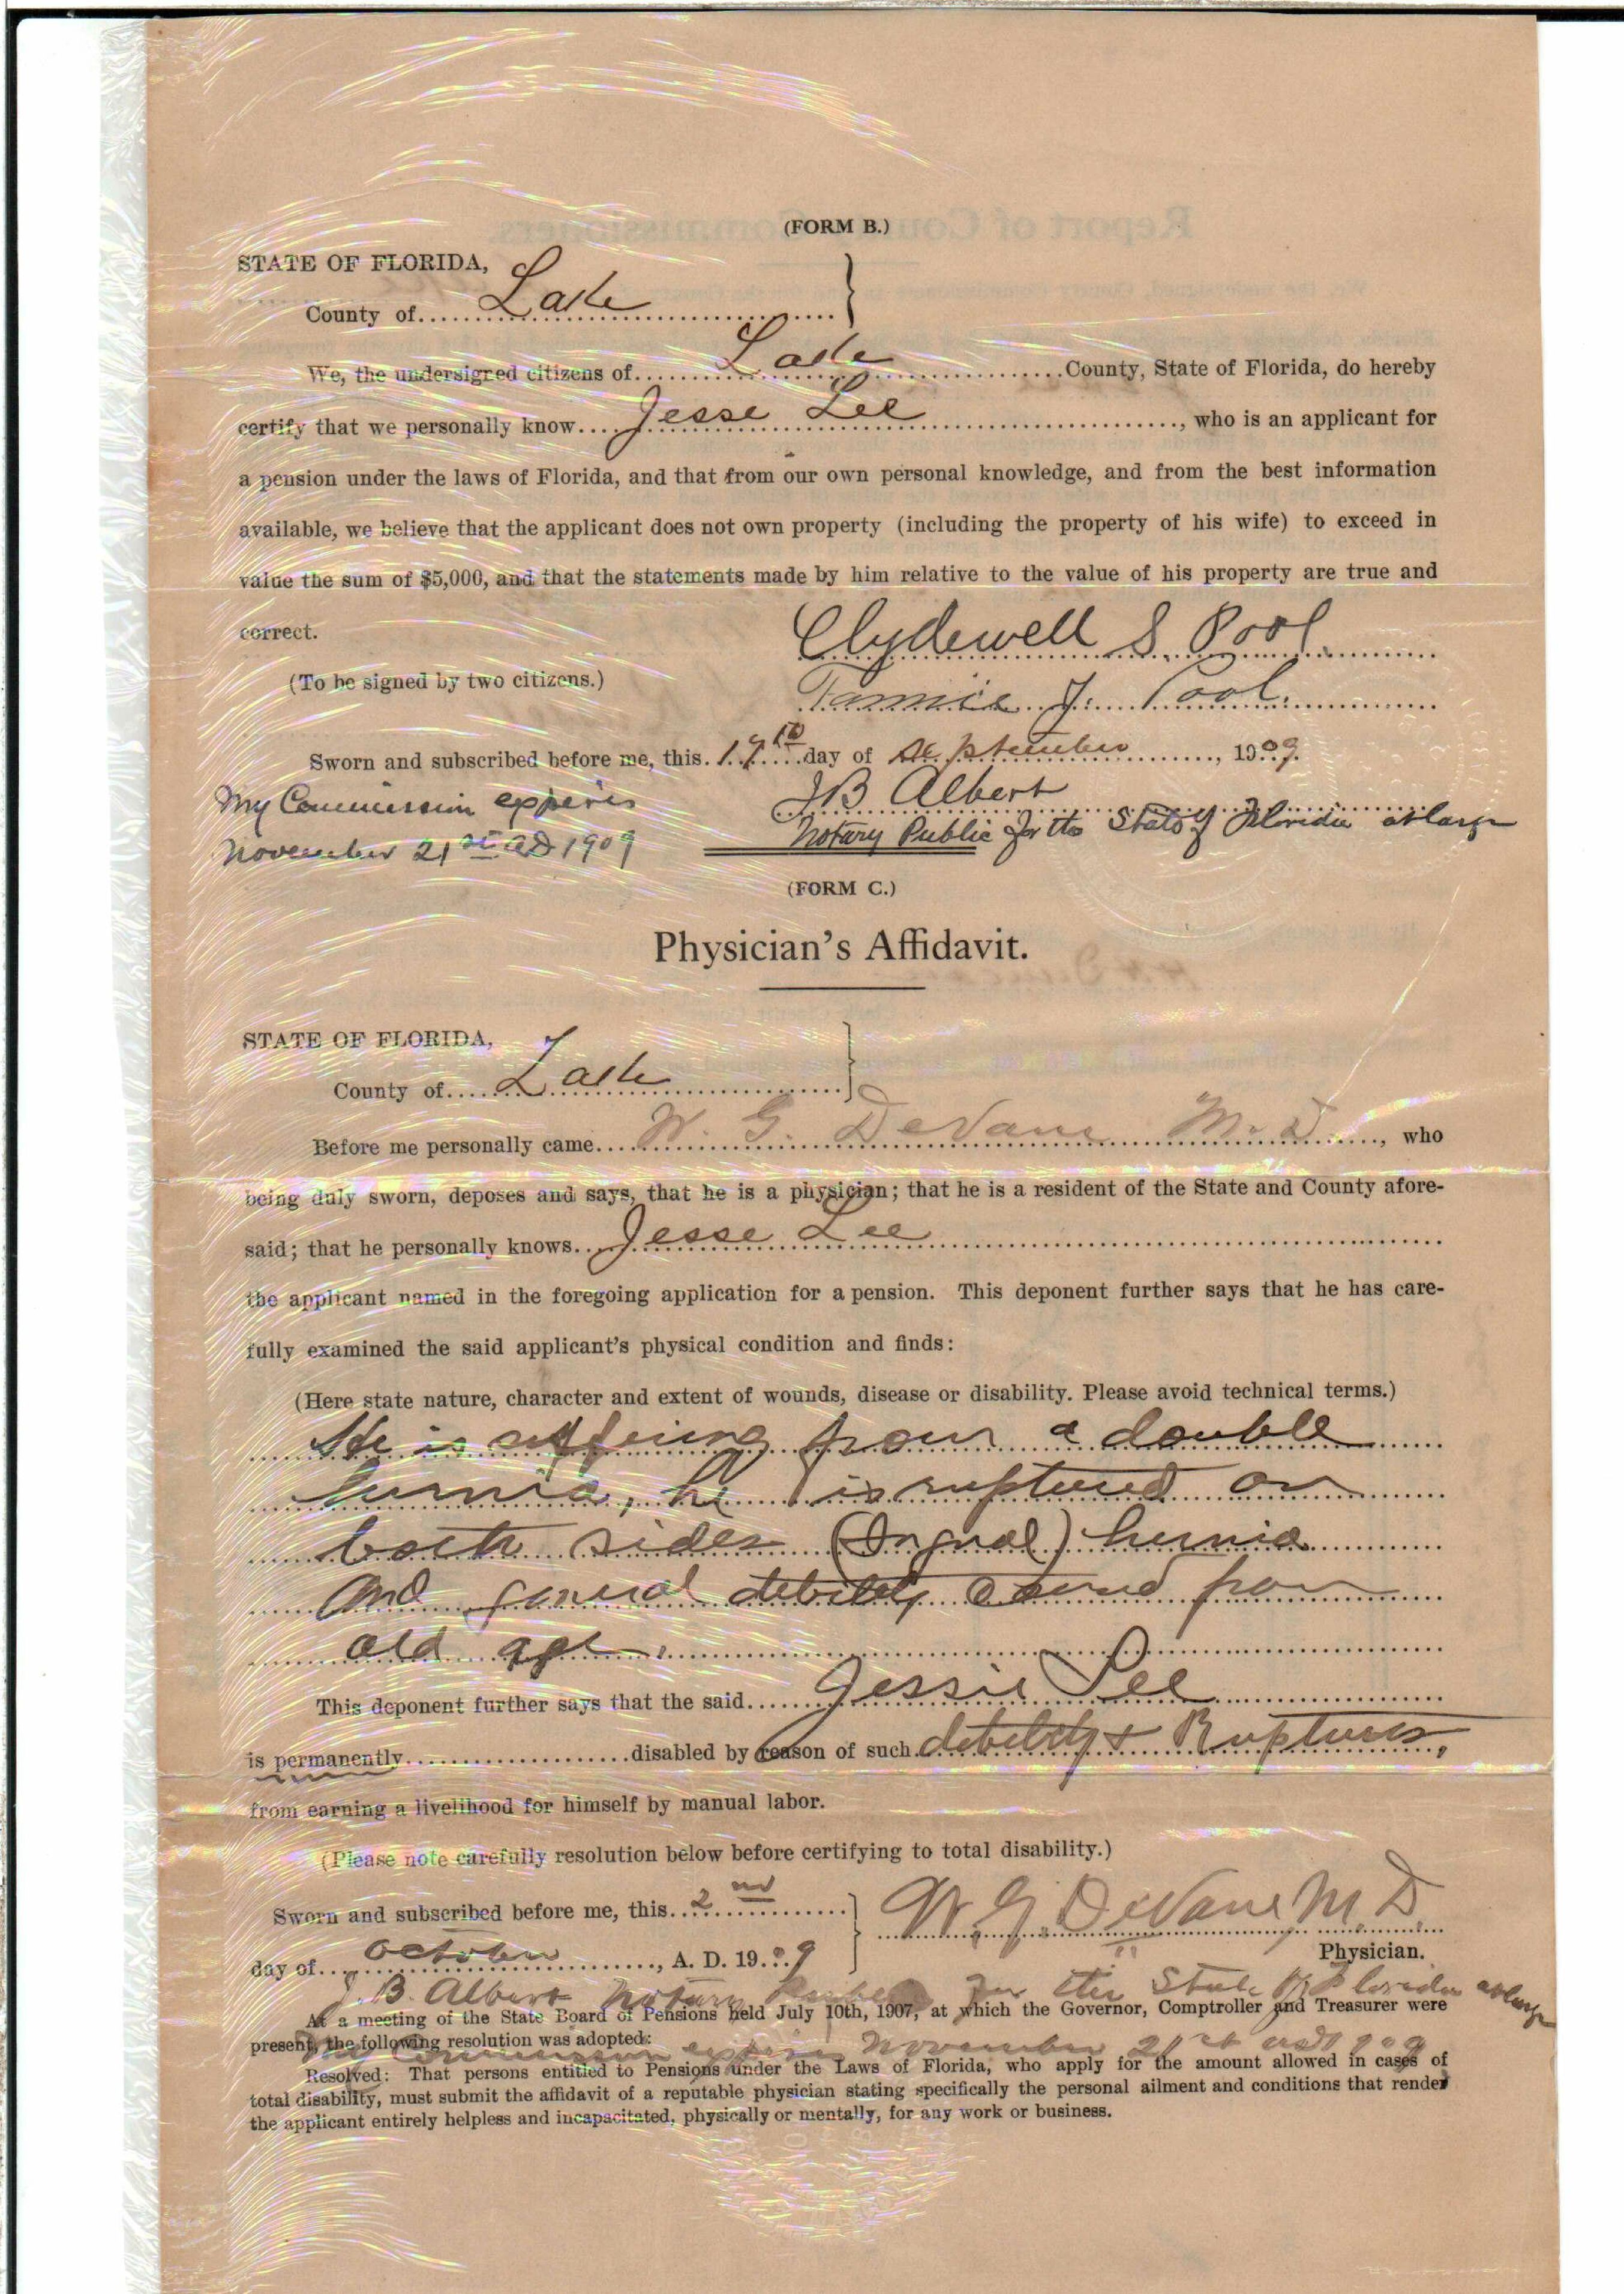 (FORM B.)
STATE OF FLORIDA,
County of Lake
We, the undersigned citizens of Lake County, State of Florida, do hereby
certify that we personally know Jesse Lee, who is an applicant for
a pension under the laws of Florida, and that from our own personal knowledge, and from the best information
available, we believe that the applicant does not own property (including the property of his wife) to exceed in
value the sum of $5,000, and that the statements made by him relative to the value of his property are true and
correct.
Clydewell S. Pool
(To be signed by two citizens.)
Fannie J. Pool.
Sworn and subscribed before me, this 19th day of September, 1909.
My Commission expires
J B Albert
Notary Public for the State of Florida at large
November 21st AD 1909
(FORM C.)
Physician's Affidavit.
STATE OF FLORIDA,
County of Lake
Before me personally came W. G. DeVane M. D., who
being duly sworn, deposes and says, that he is a physician; that he is a resident of the State and County afore-
said; that he personally knows Jesse Lee
the applicant named in the foregoing application for a pension. This deponent further says that he has care-
fully examined the said applicant's physical condition and finds:
(Here state nature, character and extent of wounds, disease or disability. Please avoid technical terms.)
He is suffering from a double
hernia, he is ruptured on
both sides hernia
and general debility caused from
old age.
This deponent further says that the said Jessie Lee
is permanently disabled by reason of such debility & Ruptures,
from earning a livelihood for himself by manual labor.
(Please note carefully resolution below before certifying to total disability.)
Sworn and subscribed before me, this 2nd
W. G. DeVane M. D.
Physician.
day of October, A. D. 1909
J. B. Albert Notary Public for the State of Florida at large
At a meeting of the State Board of Pensions held July 10th, 1907, at which the Governor, Comptroller and Treasurer were
present, the following resolution was adopted:
My Commission expires November 21st AD 1909
Resolved: That persons entitled to Pensions under the Laws of Florida, who apply for the amount allowed in cases of
total disability, must submit the affidavit of a reputable physician stating specifically the personal ailment and conditions that render
the applicant entirely helpless and incapacitated, physically or mentally, for any work or business.